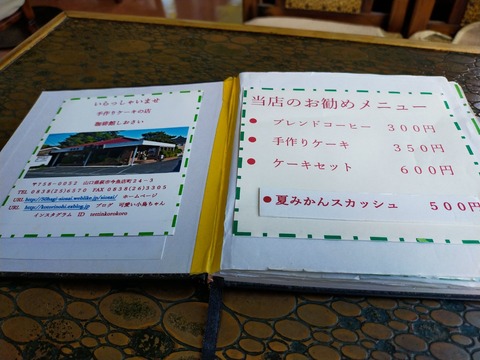 いらっしゃいませ
手作りケーキの店
珈琲館しおさい
〒758-0052 山口県萩市今魚店町24-3
TEL 0838(25)6370 FAX 0838(26)3305
URL ホームページ
URL ブログ 可愛い小鳥ちゃん
インスタグラム ID
当店のお勧めメニュー
● ブレンドコーヒー 300円
● 手作りケーキ 350円
● ケーキセット 600円
● 夏みかんスカッシュ 500円